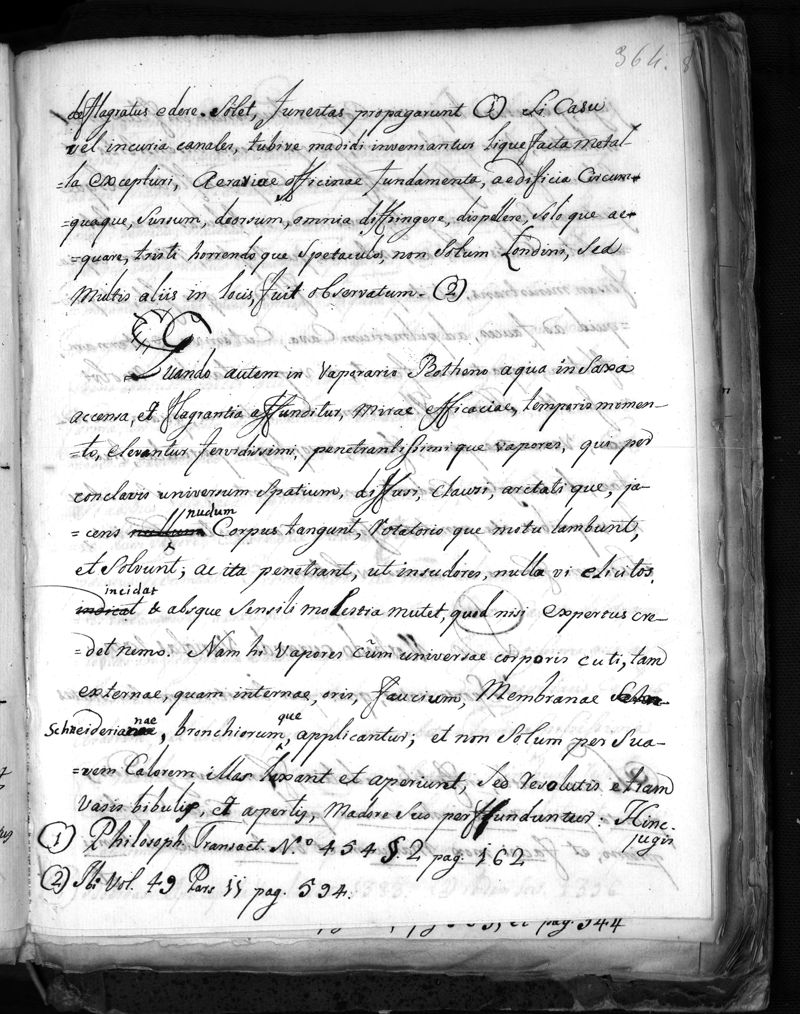 364.
deflagratus edere solet, funestas propagarunt (1) Si Casu
vel incuria canales, tubive madidi inveniantur liquefacta metal-
=la excepturi, Aerariae officinae fundamenta, aedificia Circum=
=quaque, sursum, deorsum, omnia diffringere, dispellere, solo que ae=
=quare, tristi horrendo que spetaculo, non solum Londini, sed
Multis aliis in locis, fuit observatum. (2)
Quando autem in Vaporario Botheno aqua in Saxa
accensa, et flagrantia affunditur, Mirae efficaciae, temporis momen-
=to, elevantur fervidissimi, penetrantissimique vapores, qui per
conclavis universum spatium, diffusi, clausi, arctati que, ja-
nudum
=cens Corpus tangunt, Rotatorio que motu lambunt,
et Solvunt; ac ita penetrant, ut insudores, nulla vi elicitos,
incidat
indicat & absque Sensili molestia mutet, quod nisi expertus cre-
=det nemo. Nam hi Vapores cum universae corporis cuti, tam
externae, quam internae, oris, faucium, Membranae
nae que
Schneideria, bronchiorum, applicantur; et non Solum per Sua-
=vem Calorem illas laxant et aperiunt, Sed resolutis etiam
Vasis bibulis, et apertis, Madore Suo perffunduntur: Hinc
jugis
(1) Philosoph. Transact. No 454 §. 2 pag. 162
(2) Ibi Vol. 49 Pars 11 pag. 594.
et pag. 344